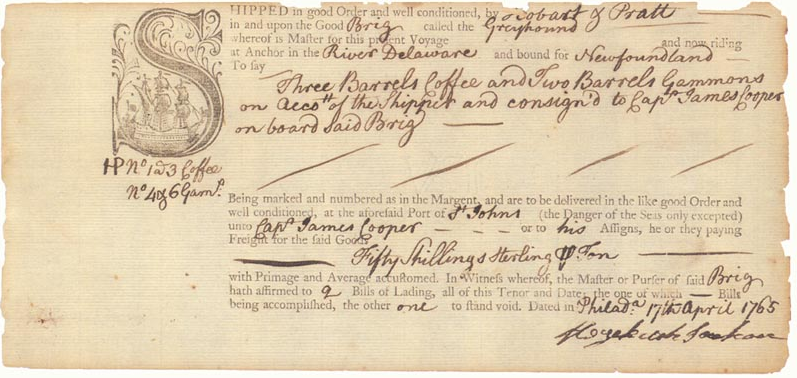 SHIPPED in good Order and well conditioned, by Hobart & Pratt
in and upon the Good Brig called the Greyhound
whereof is Maſter for this preſent Voyage and now riding
at Anchor in the River Delaware and bound for Newfoundland
To ſay
Three Barrels Coffee and Two Barrels Gammons
on accott of the Shipper and consign'd to Capt James Cooper
on board Said Brig
HP No 1 a 3 Coffee
No 4 & 6 Gams.
Being marked and numbered as in the Margent, and are to be delivered in the like good Order and
well conditioned, at the aforeſaid Port of St Johns (the Danger of the Seas only excepted)
unto Capt James Cooper - - - or to his Aſſigns, he or they paying
Freight for the ſaid Goods
Fifty Shillings Sterling ⅌ Ton
with Primage and Average accuſtomed. In Witneſs whereof, the Maſter or Purſer of ſaid Brig
hath affirmed to 2 Bills of Lading, all of this Tenor and Date, the one of which — Bills
being accompliſhed, the other one to ſtand void. Dated in Philada. 17th April 1765